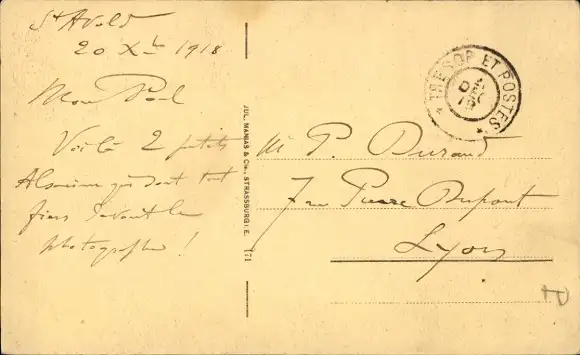 St Avold
20 Xbre 1918
Mon Paul
Voilà 2 petits
Alsaciens qui sont tout
fiers devant le
photographe !
JUL. MANIAS & Cie., STRASSBURG i. E.
171
TRESOR ET POSTES
M P. Durand
7 rue Pierre Dupont
Lyon